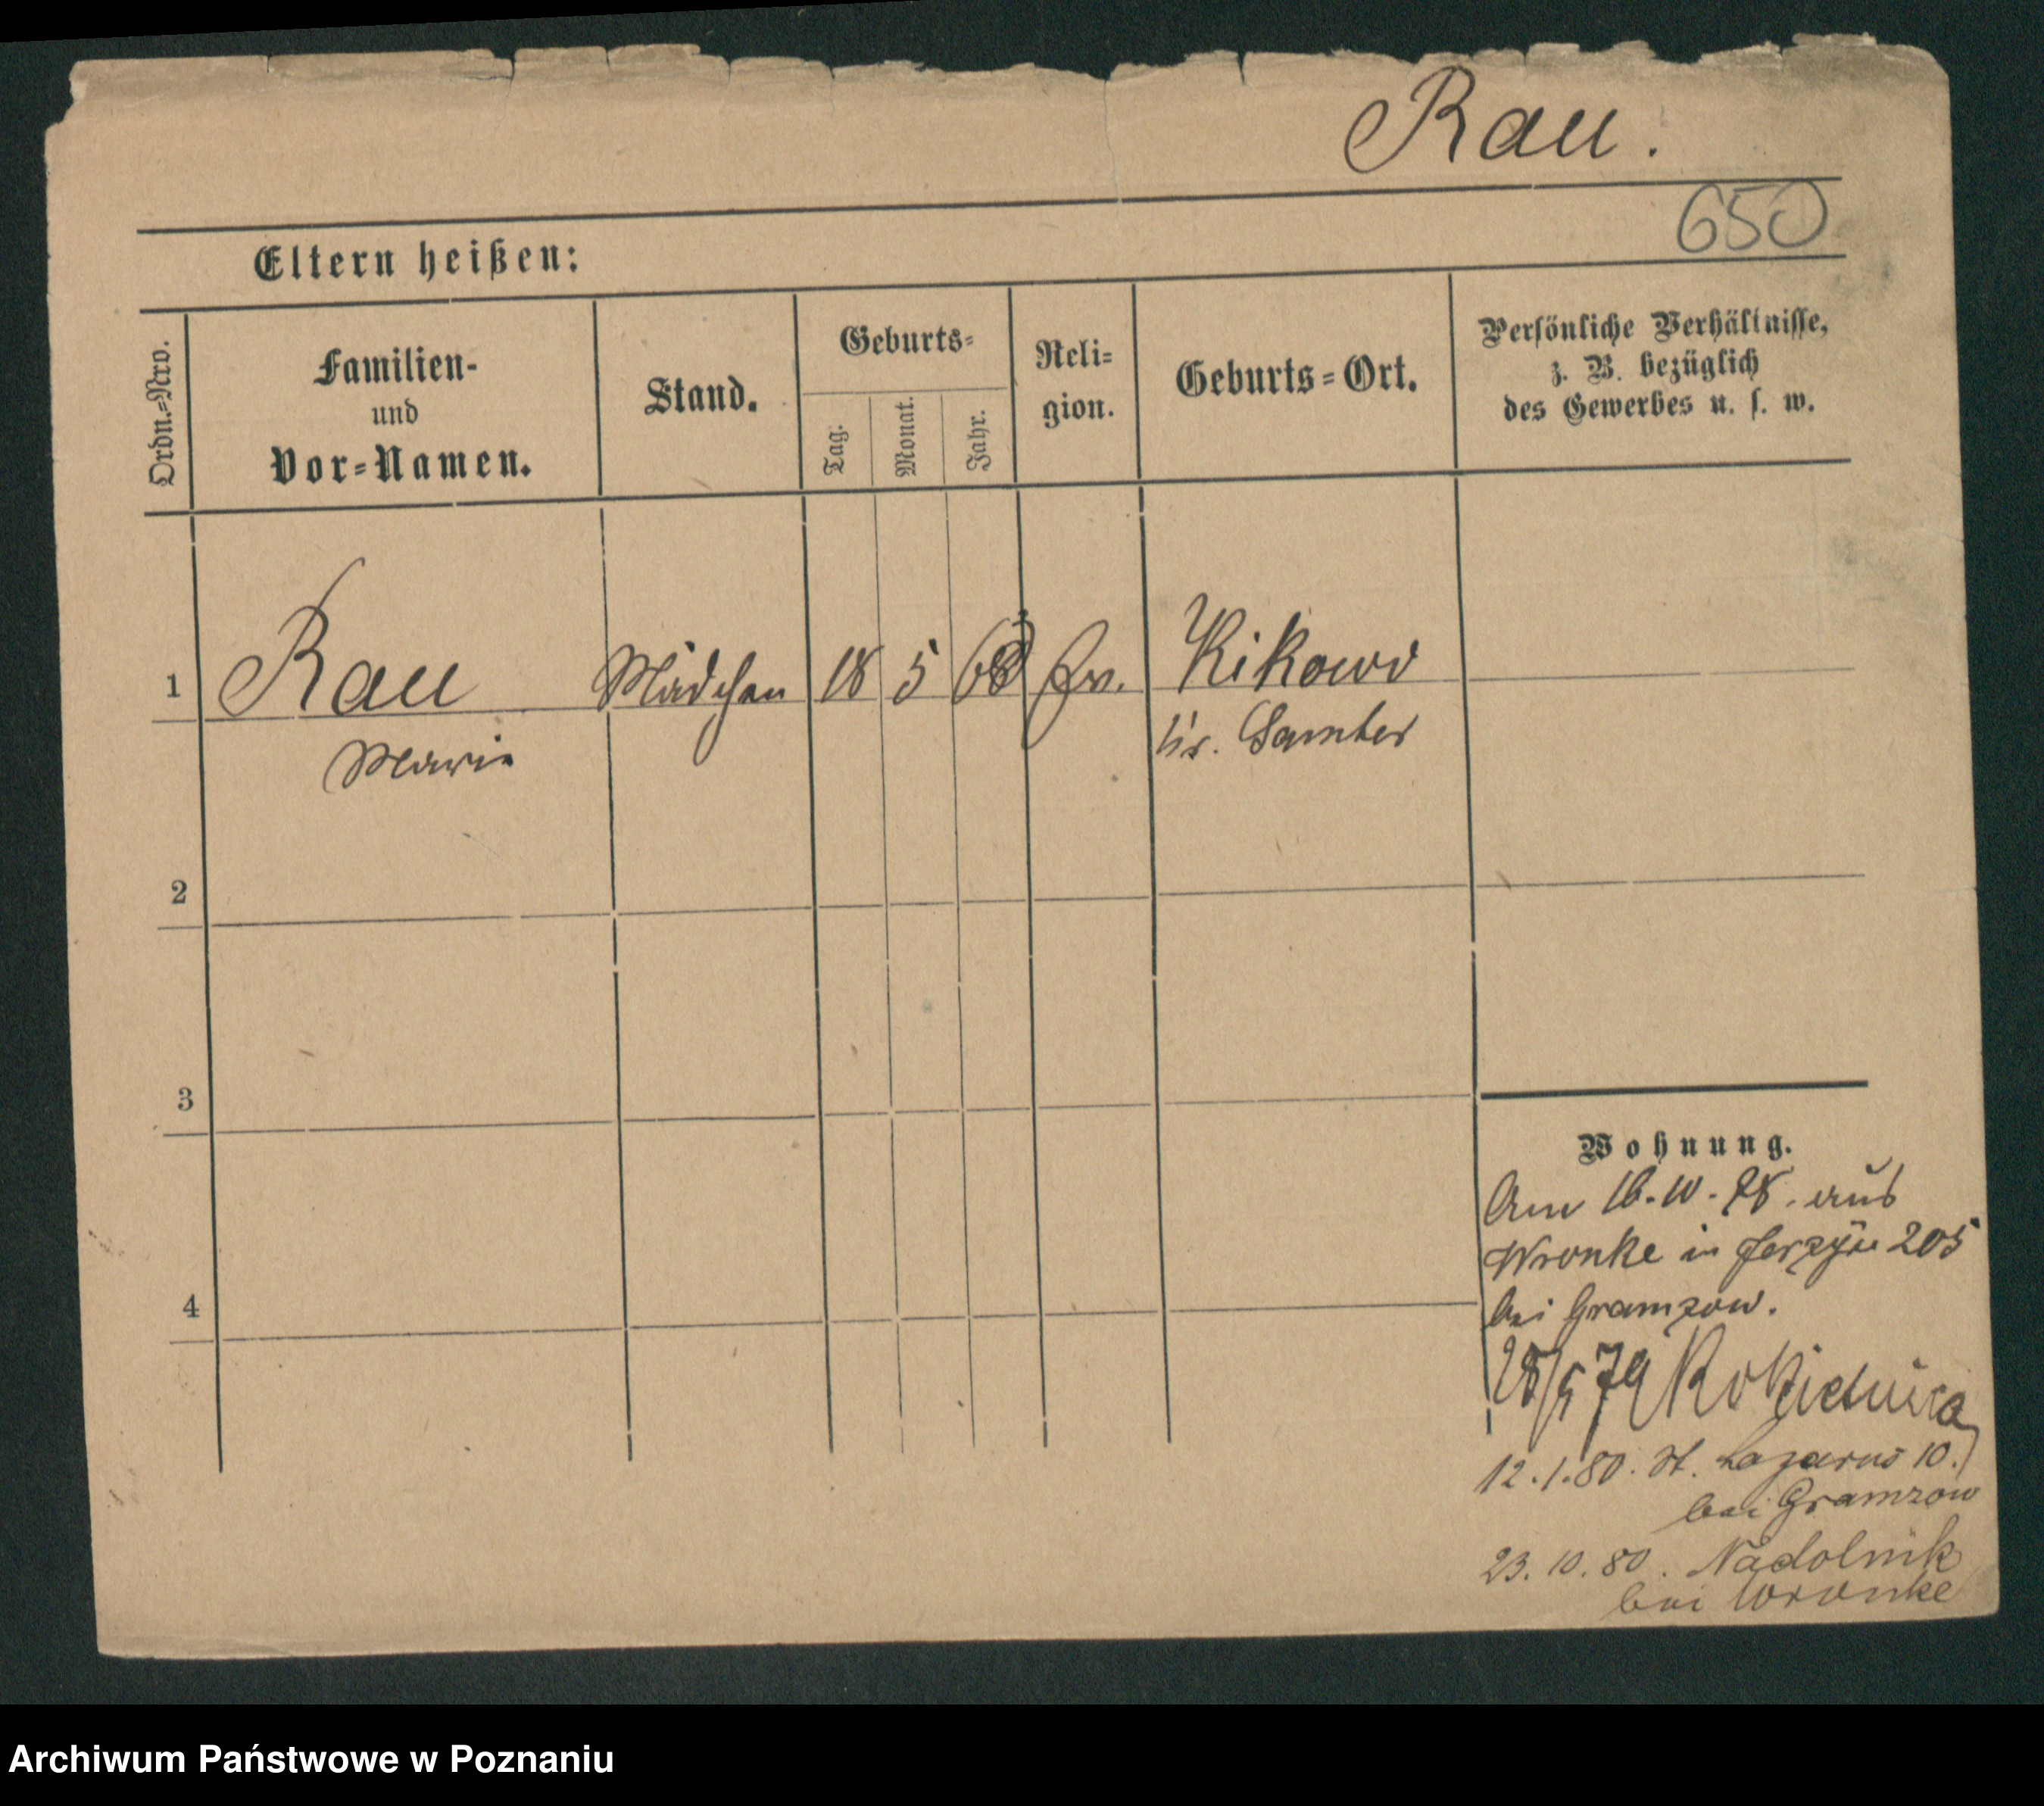 Rau.
650
Eltern heißen:
Ordn.=Nro.
Familien-
und
Vor=Namen.
Stand.
Geburts=
Tag.
Monat.
Jahr.
Reli=
gion.
Geburts=Ort.
Persönliche Verhältnisse,
z. B. bezüglich
des Gewerbes u. s. w.
1 Rau Mädchen 18 5 Kikowo
Marie Kr. Samter
2
3
4
Wohnung.
Am 16.10.78. aus
Wronke in Jerzyce 205
bei Gramzow.
79 Rokietnica
12.1.80. St. Lazarus 10.
bei Gramzow
23.10.80. Nadolnik
bei Wronke
Archiwum Państwowe w Poznaniu